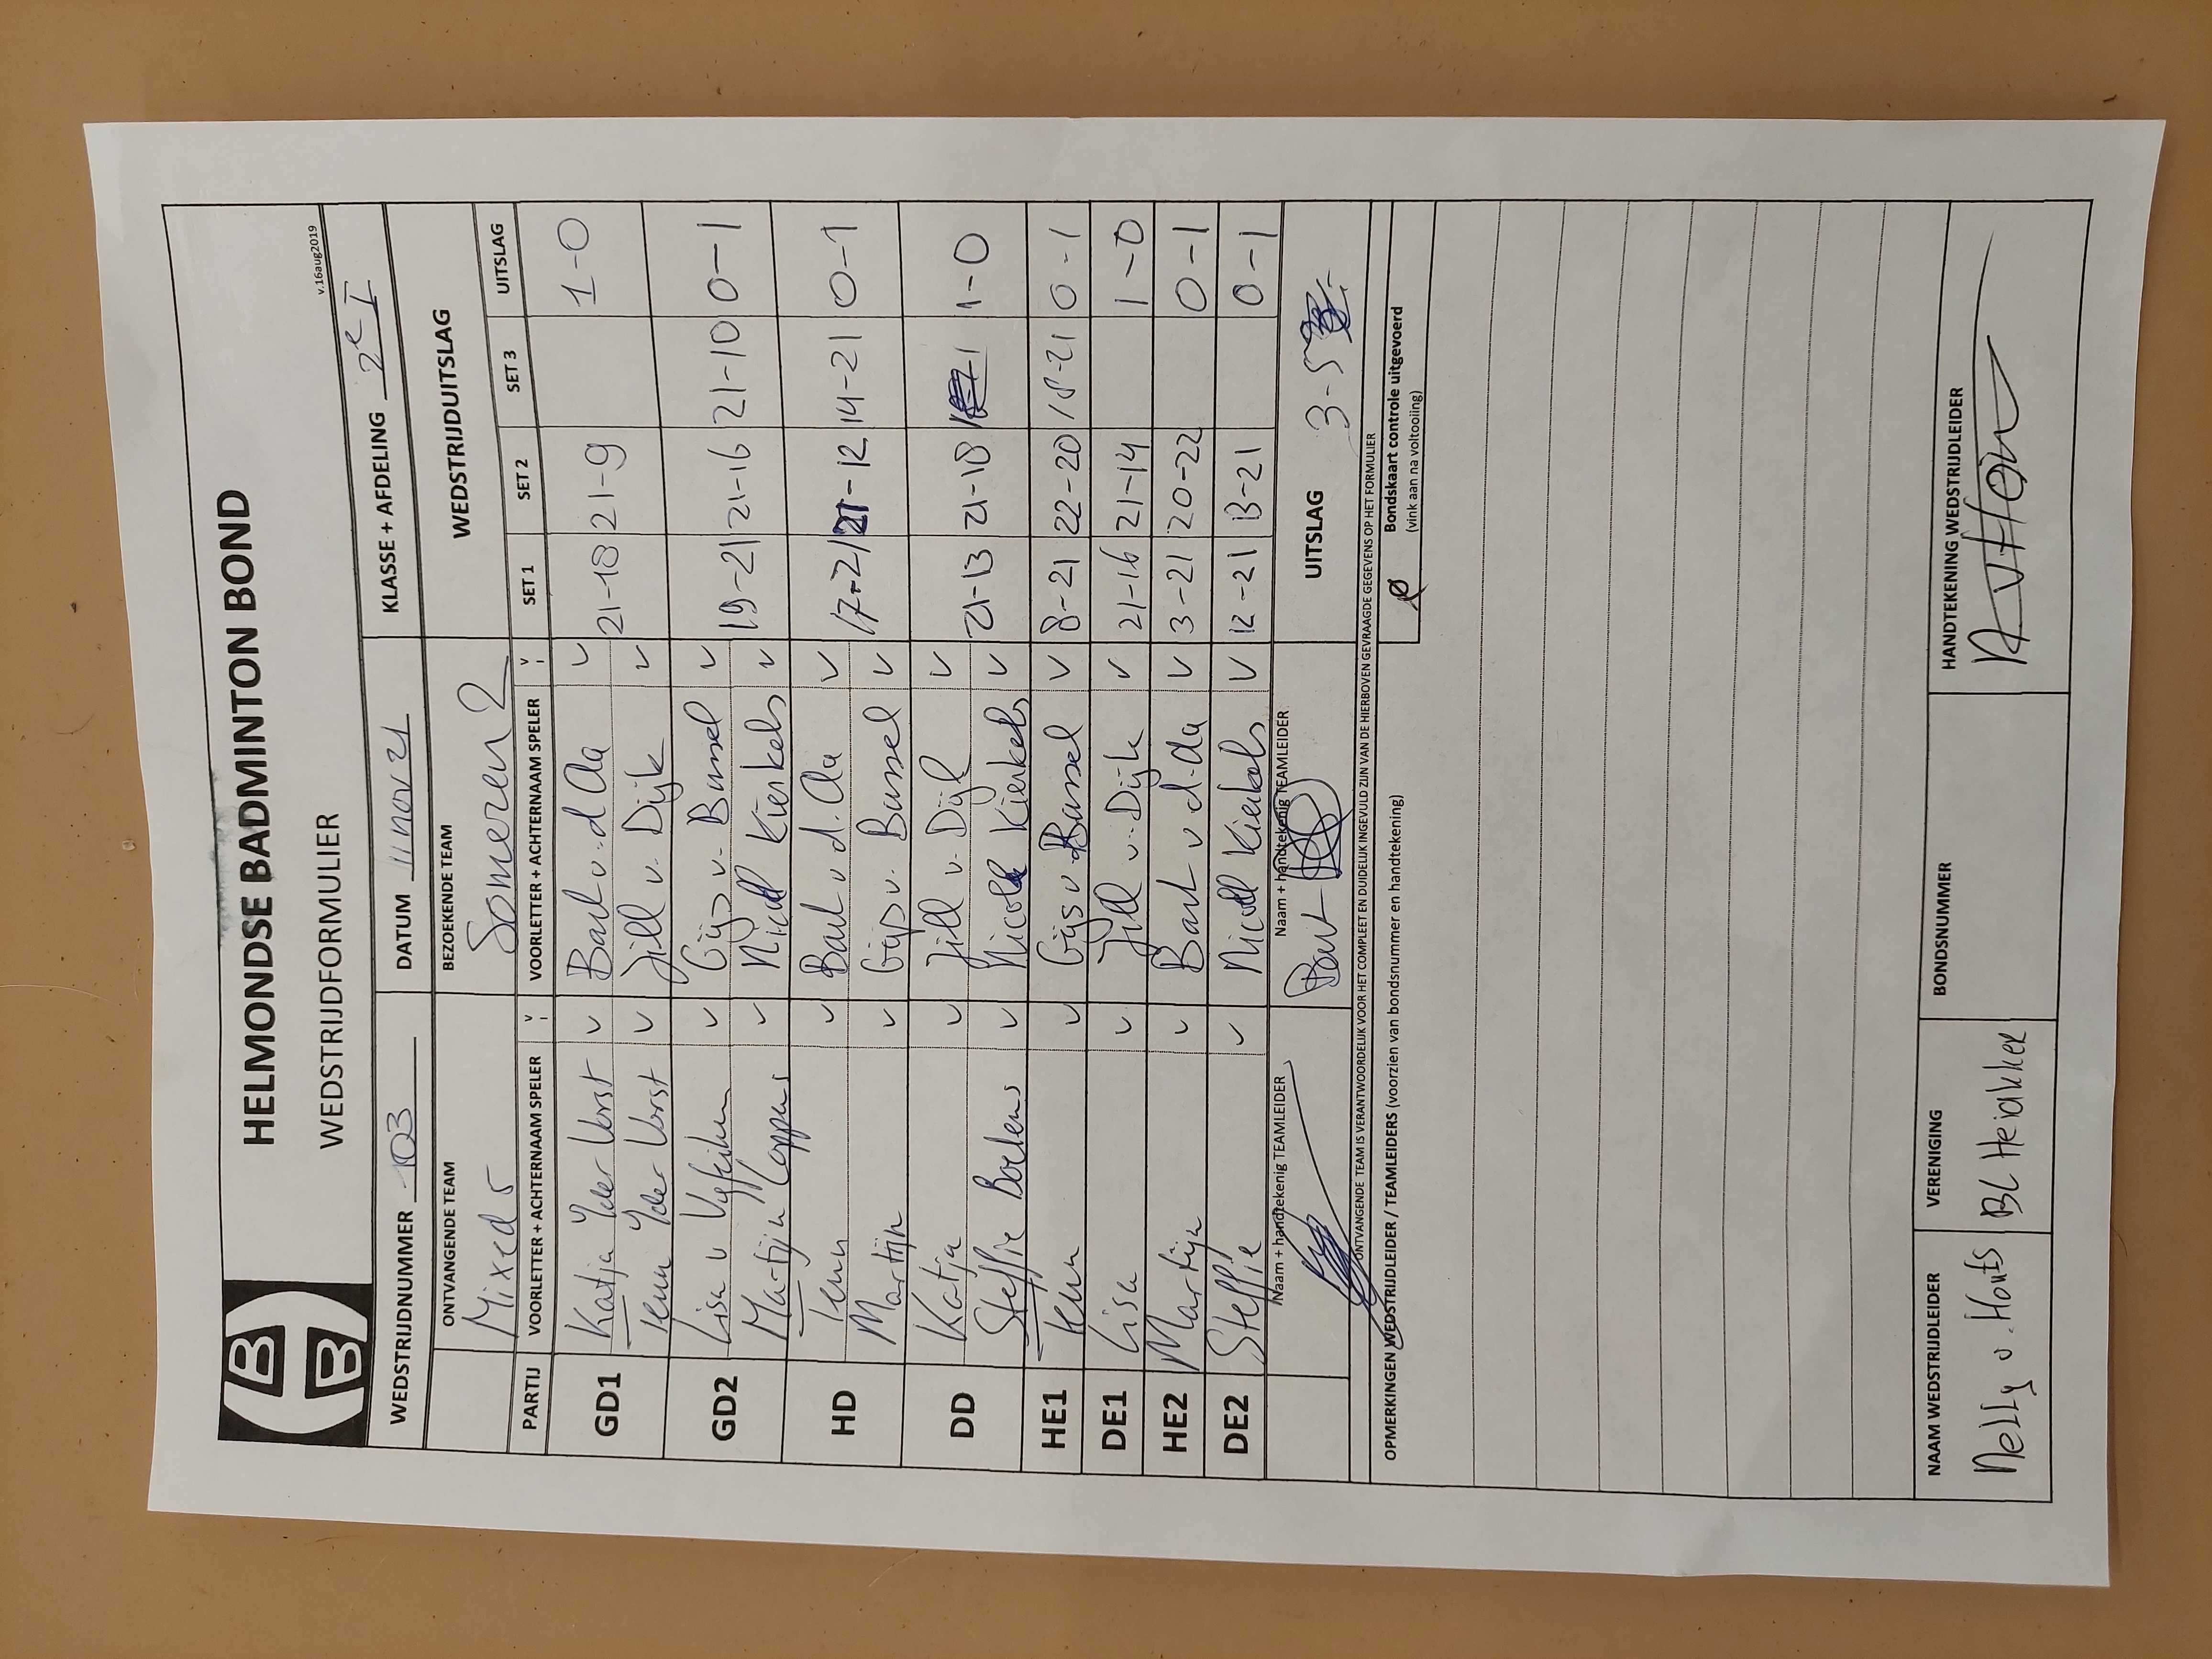 HELMONDSE BADMINTON BOND
WEDSTRIJDFORMULIER
v.16aug2019
WEDSTRIJDNUMMER 103 DATUM 11 nov 21 KLASSE + AFDELING 2e I
ONTVANGENDE TEAM BEZOEKENDE TEAM WEDSTRIJDUITSLAG
Mixed 5 Someren 2
PARTIJ VOORLETTER + ACHTERNAAM SPELER v VOORLETTER + ACHTERNAAM SPELER v SET 1 SET 2 SET 3 UITSLAG
GD1 Katja v Bart v.d Aa v 21-18 21-9 1-0
v Jill v. Dijk v
GD2 Lisa v v Gijs v. Bussel v 19-21 21-16 21-10 0-1
Martijn Coppens v Nicoll Kierkels v
HD v Bart v.d. Aa v 17-21 21-12 14-21 0-1
Martijn v Gijs v. Bussel v
DD Katja v Jill v. Dijk v 21-13 21-18 1-0
Steffie Boelens v Nicole Kierkels v
HE1 v Gijs v. Bussel v 8-21 22-20 18-21 0-1
DE1 Lisa v Jill v. Dijk v 21-16 21-14 1-0
HE2 Martijn v Bart v.d.Aa v 3-21 20-22 0-1
DE2 Steffie v Nicoll Kierkels v 12-21 13-21 0-1
Naam + handtekenig TEAMLEIDER Naam + handtekenig TEAMLEIDER UITSLAG 3-5
Bart
ONTVANGENDE TEAM IS VERANTWOORDELIJK VOOR HET COMPLEET EN DUIDELIJK INGEVULD ZIJN VAN DE HIERBOVEN GEVRAAGDE GEGEVENS OP HET FORMULIER
OPMERKINGEN WEDSTRIJDLEIDER / TEAMLEIDERS (voorzien van bondsnummer en handtekening)
Bondskaart controle uitgevoerd
(vink aan na voltooiing)
NAAM WEDSTRIJDLEIDER VERENIGING BONDSNUMMER HANDTEKENING WEDSTRIJDLEIDER
Nelly v. Houts BC Heiakker